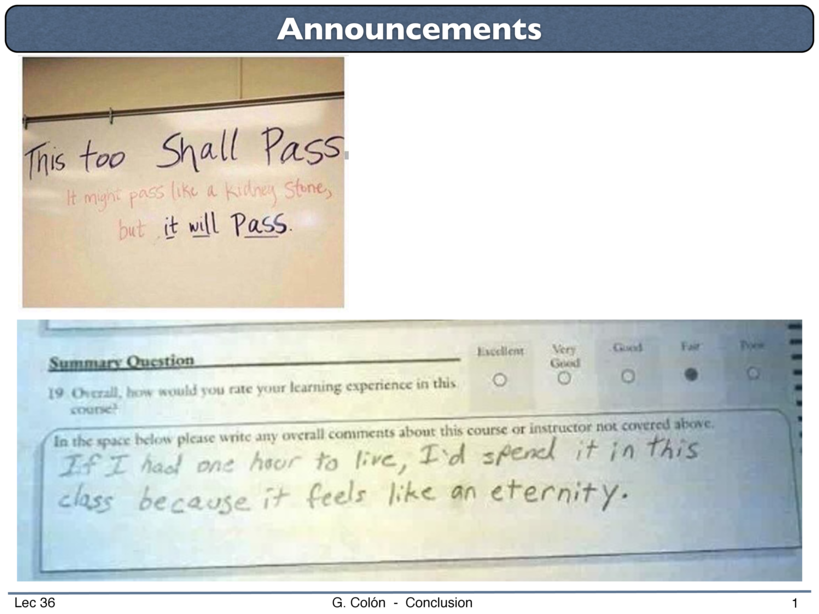 Announcements
This too Shall Pass
It might pass like a kidney Stone,
but it will Pass.
Summary Question
Excellent Very Good Good Fair Poor
19 Overall, how would you rate your learning experience in this
course?
In the space below please write any overall comments about this course or instructor not covered above.
If I had one hour to live, I'd spend it in this
class because it feels like an eternity.
Lec 36 G. Colón - Conclusion 1